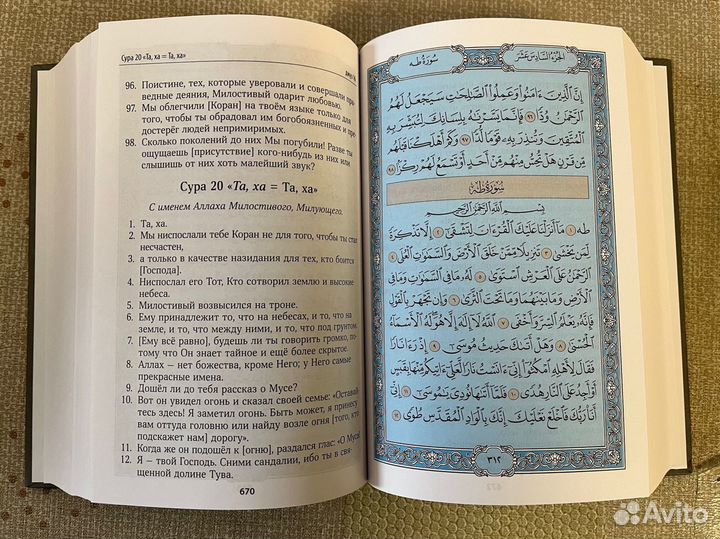 Сура 20 «Та, ха = Та, ха»
96. Поистине, тех, которые уверовали и совершали пра-
ведные деяния, Милостивый одарит любовью.
97. Мы облегчили [Коран] на твоём языке только для
того, чтобы ты обрадовал им богобоязненных и пре-
достерёг людей непримиримых.
98. Сколько поколений до них Мы погубили! Разве ты
ощущаешь [присутствие] кого-нибудь из них или
слышишь от них хоть малейший звук?
Сура 20 «Та, ха = Та, ха»
С именем Аллаха Милостивого, Милующего.
1. Та, ха.
2. Мы ниспослали тебе Коран не для того, чтобы ты стал
несчастен,
3. а только в качестве назидания для тех, кто боится
[Господа].
4. Ниспослал его Тот, Кто сотворил землю и высокие
небеса.
5. Милостивый возвысился на троне.
6. Ему принадлежит то, что на небесах, и то, что на
земле, и то, что между ними, и то, что под грунтом.
7. [Ему всё равно], будешь ли ты говорить громко, пото-
му что Он знает тайное и ещё более скрытое.
8. Аллах – нет божества, кроме Него; у Него самые
прекрасные имена.
9. Дошёл ли до тебя рассказ о Мусе?
10. Вот он увидел огонь и сказал своей семье: «Оставай-
тесь здесь! Я заметил огонь. Быть может, я принесу
вам оттуда головню или найду возле огня [того, кто
подскажет нам] дорогу».
11. Когда же он подошёл к [огню], раздался глас: «О Муса!
12. Я – твой Господь. Сними сандалии, ибо ты в свя-
щенной долине Тува.
670
الجزء السادس عشر
سورة طه
إِنَّ ٱلَّذِينَ ءَامَنُوا۟ وَعَمِلُوا۟ ٱلصَّٰلِحَٰتِ سَيَجْعَلُ لَهُمُ
ٱلرَّحْمَٰنُ وُدًّا ٩٦ فَإِنَّمَا يَسَّرْنَٰهُ بِلِسَانِكَ لِتُبَشِّرَ بِهِ
ٱلْمُتَّقِينَ وَتُنذِرَ بِهِۦ قَوْمًا لُّدًّا ٩٧ وَكَمْ أَهْلَكْنَا قَبْلَهُم
مِّن قَرْنٍ هَلْ تُحِسُّ مِنْهُم مِّنْ أَحَدٍ أَوْ تَسْمَعُ لَهُمْ رِكْزًا ٩٨
سورة طه
بِسْمِ ٱللَّهِ ٱلرَّحْمَٰنِ ٱلرَّحِيمِ
طه ١ مَآ أَنزَلْنَا عَلَيْكَ ٱلْقُرْءَانَ لِتَشْقَىٰٓ ٢ إِلَّا تَذْكِرَةً
لِّمَن يَخْشَىٰ ٣ تَنزِيلًا مِّمَّنْ خَلَقَ ٱلْأَرْضَ وَٱلسَّمَٰوَٰتِ ٱلْعُلَى ٤
ٱلرَّحْمَٰنُ عَلَى ٱلْعَرْشِ ٱسْتَوَىٰ ٥ لَهُۥ مَا فِى ٱلسَّمَٰوَٰتِ وَمَا فِى
ٱلْأَرْضِ وَمَا بَيْنَهُمَا وَمَا تَحْتَ ٱلثَّرَىٰ ٦ وَإِن تَجْهَرْ بِٱلْقَوْلِ
فَإِنَّهُۥ يَعْلَمُ ٱلسِّرَّ وَأَخْفَى ٧ ٱللَّهُ لَآ إِلَٰهَ إِلَّا هُوَ لَهُ ٱلْأَسْمَآءُ
ٱلْحُسْنَىٰ ٨ وَهَلْ أَتَىٰكَ حَدِيثُ مُوسَىٰٓ ٩ إِذْ رَءَا نَارًا
فَقَالَ لِأَهْلِهِ ٱمْكُثُوٓا۟ إِنِّىٓ ءَانَسْتُ نَارًا لَّعَلِّىٓ ءَاتِيكُم مِّنْهَا بِقَبَسٍ
أَوْ أَجِدُ عَلَى ٱلنَّارِ هُدًى ١٠ فَلَمَّآ أَتَىٰهَا نُودِىَ يَٰمُوسَىٰٓ ١١ إِنِّىٓ
أَنَا۠ رَبُّكَ فَٱخْلَعْ نَعْلَيْكَ إِنَّكَ بِٱلْوَادِ ٱلْمُقَدَّسِ طُوًى ١٢
٣١٢
Avito